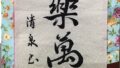 樂萬
清泉